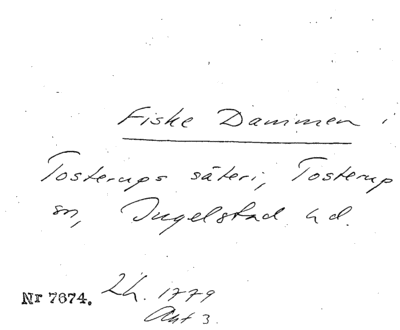 Fiske Dammen i
Tosterups säteri, Tosterup
sn, Ingelstad hd.
Nr 7674. Lh. 1779
Akt 3.